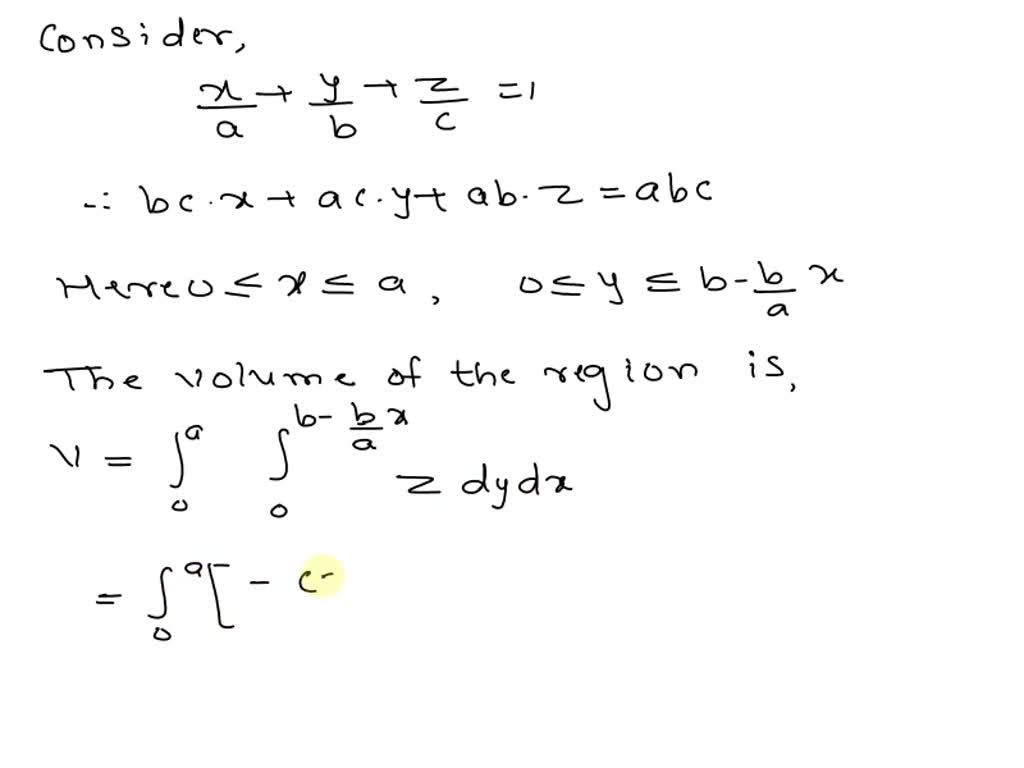 Consider,
x/a + y/b + z/c = 1
∴ bc·x + ac·y + ab·z = abc
Here 0 ≤ x ≤ a, 0 ≤ y ≤ b - b/a x
The volume of the region is,
V = ∫_0^a ∫_0^{b - b/a x} z dy dx
= ∫_0^a [ - c